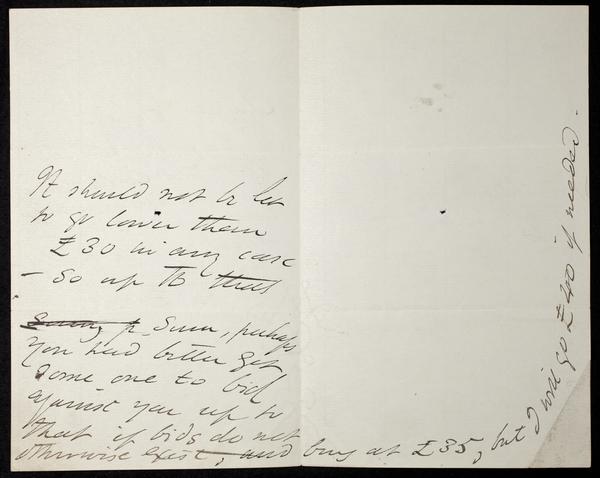 It should not be let
to go lower than
£30 in any case
- So up to that
sum, perhaps
you had better get
some one to bid
against you up to
that if bids do not
otherwise exist, and buy at £35, but I will go £40 if needed.